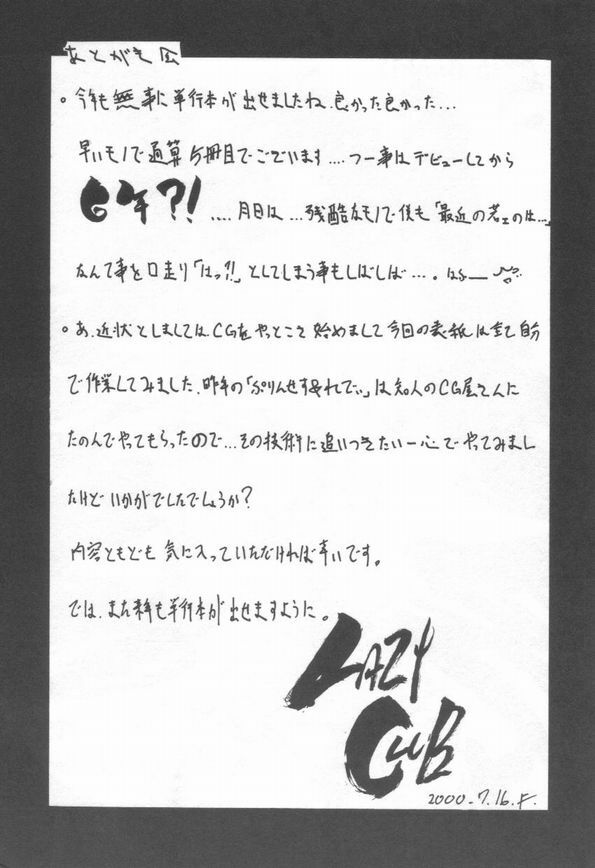 あとがき
。今年も無事に単行本が出せましたね、良かった良かった…
早いモノで通算5冊目でございます….つー事はデビューしてから
6年?! ….月日は…残酷なモノで僕も「最近の若ェのは…」
なんて事を口走り「はっ?!」としてしまう事もしばしば….はふー
。あ、近状としましては、CGをやっとこそ始めまして今回の表紙は全て自分
で作業してみました、昨年の「ぷりんせすあれでぃ」は知人のCG屋さんに
たのんでやってもらったので…その技術に追いつきたい一心でやってみまし
たけどいかがでしたでしょうか?
内容ともども気に入っていただければ幸いです。
では、また来年も単行本が出せますように。
LAZY
CLUB
2000.7.16.F.